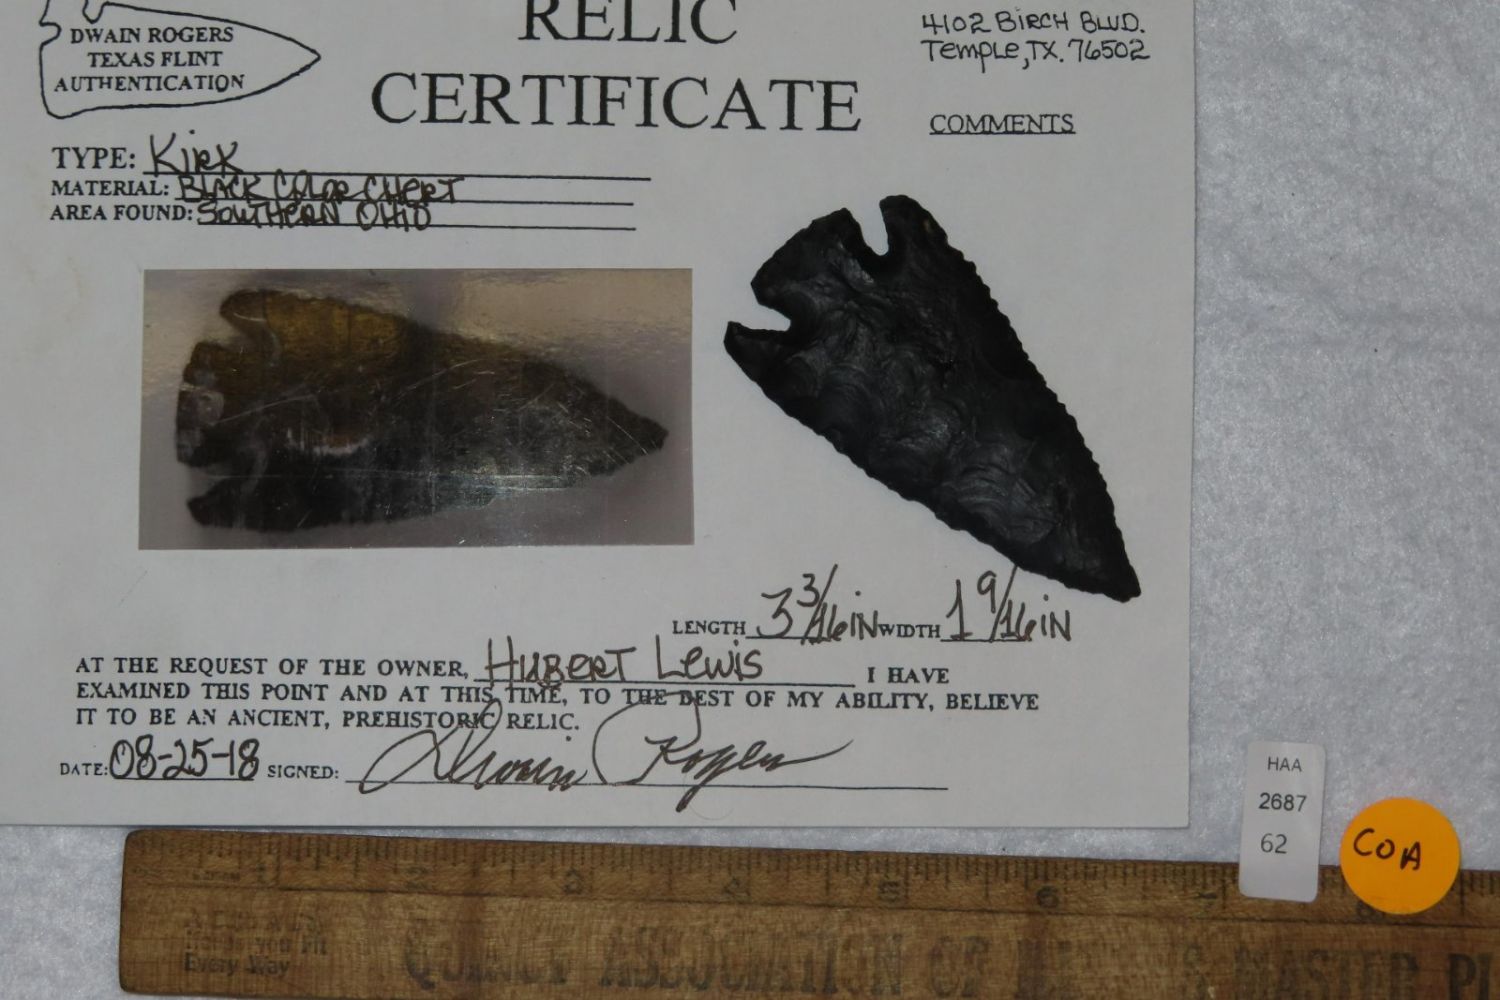 DWAIN ROGERS
TEXAS FLINT
AUTHENTICATION
RELIC
CERTIFICATE
4102 BIRCH BLVD.
Temple, TX. 76502
COMMENTS
TYPE: Kirk
MATERIAL: BLACK COLOR CHERT
AREA FOUND: SOUTHERN OHIO
LENGTH 3 3/16 iN WIDTH 1 9/16 iN
AT THE REQUEST OF THE OWNER, HUBERT LewiS I HAVE
EXAMINED THIS POINT AND AT THIS TIME, TO THE BEST OF MY ABILITY, BELIEVE
IT TO BE AN ANCIENT, PREHISTORIC RELIC.
DATE: 08-25-18 SIGNED: Dwain Rogers
HAA
2687
62
COA
1 2 3 4 5 6 7 8
you Fit
Every Way
QUINCY ASSOCIATION OF MASTER